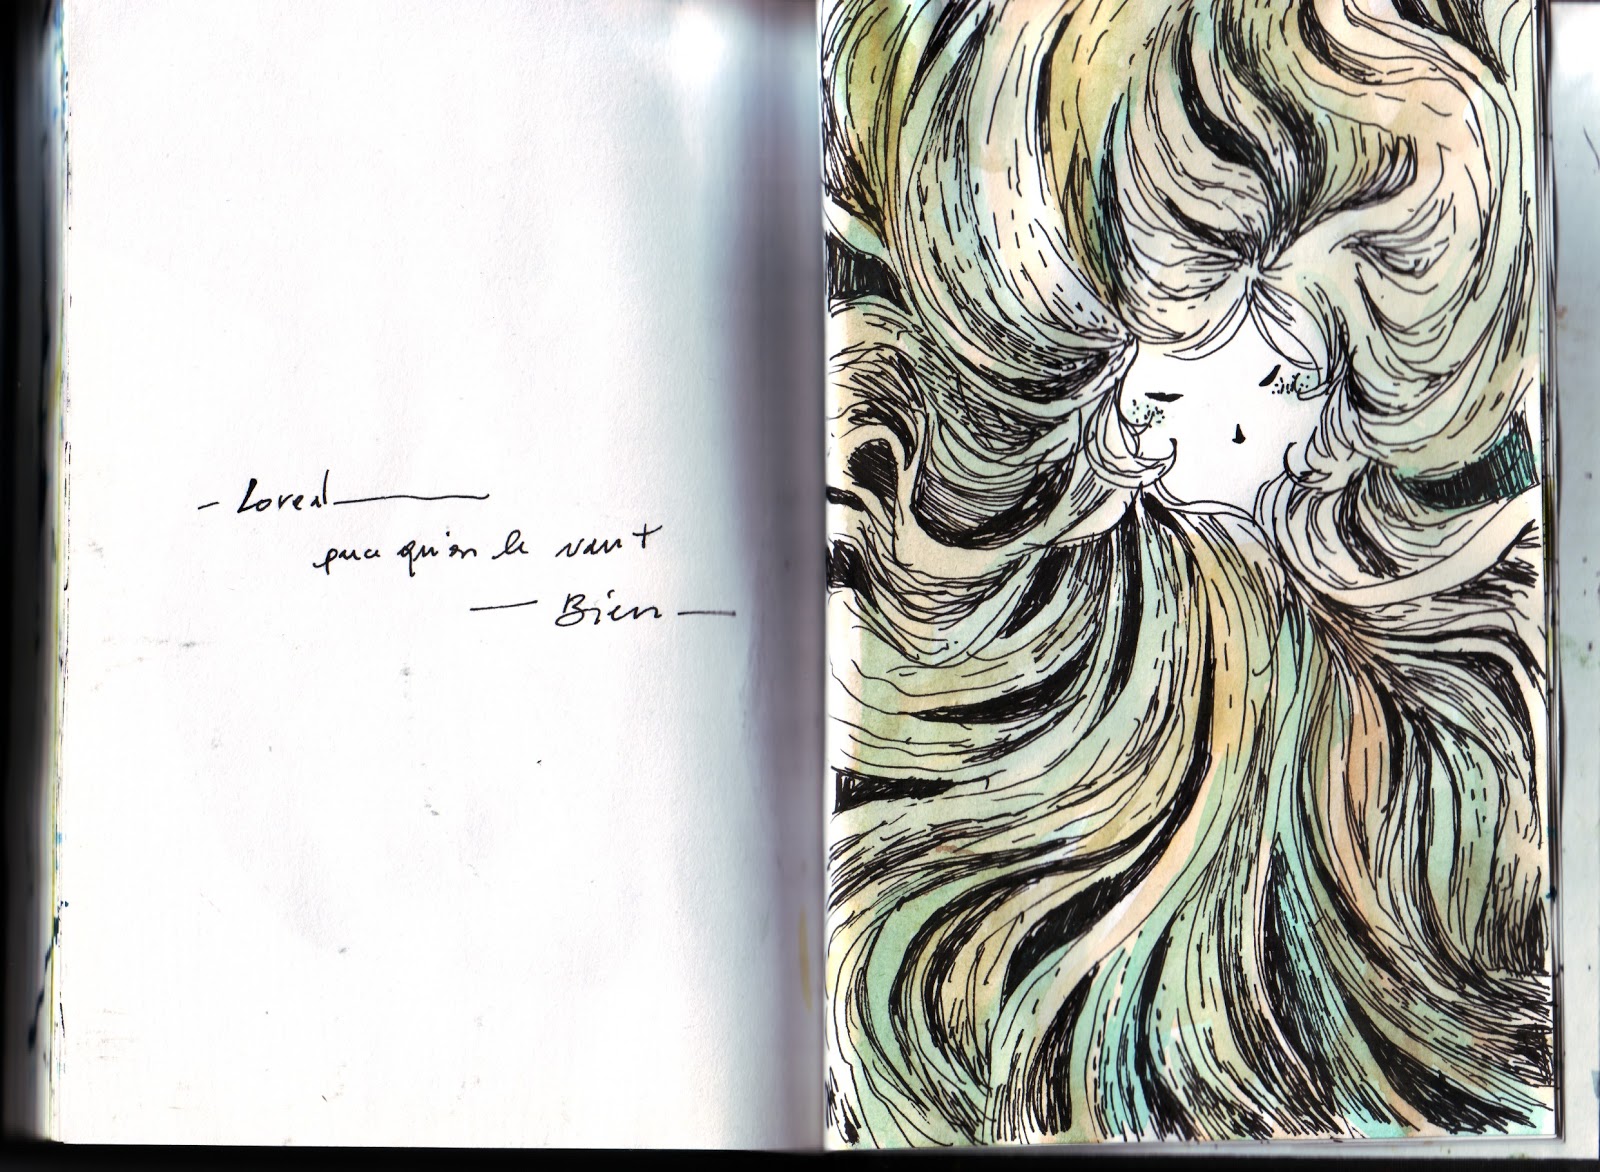 - Loreal
parce qu'on le vaut
- Bien -